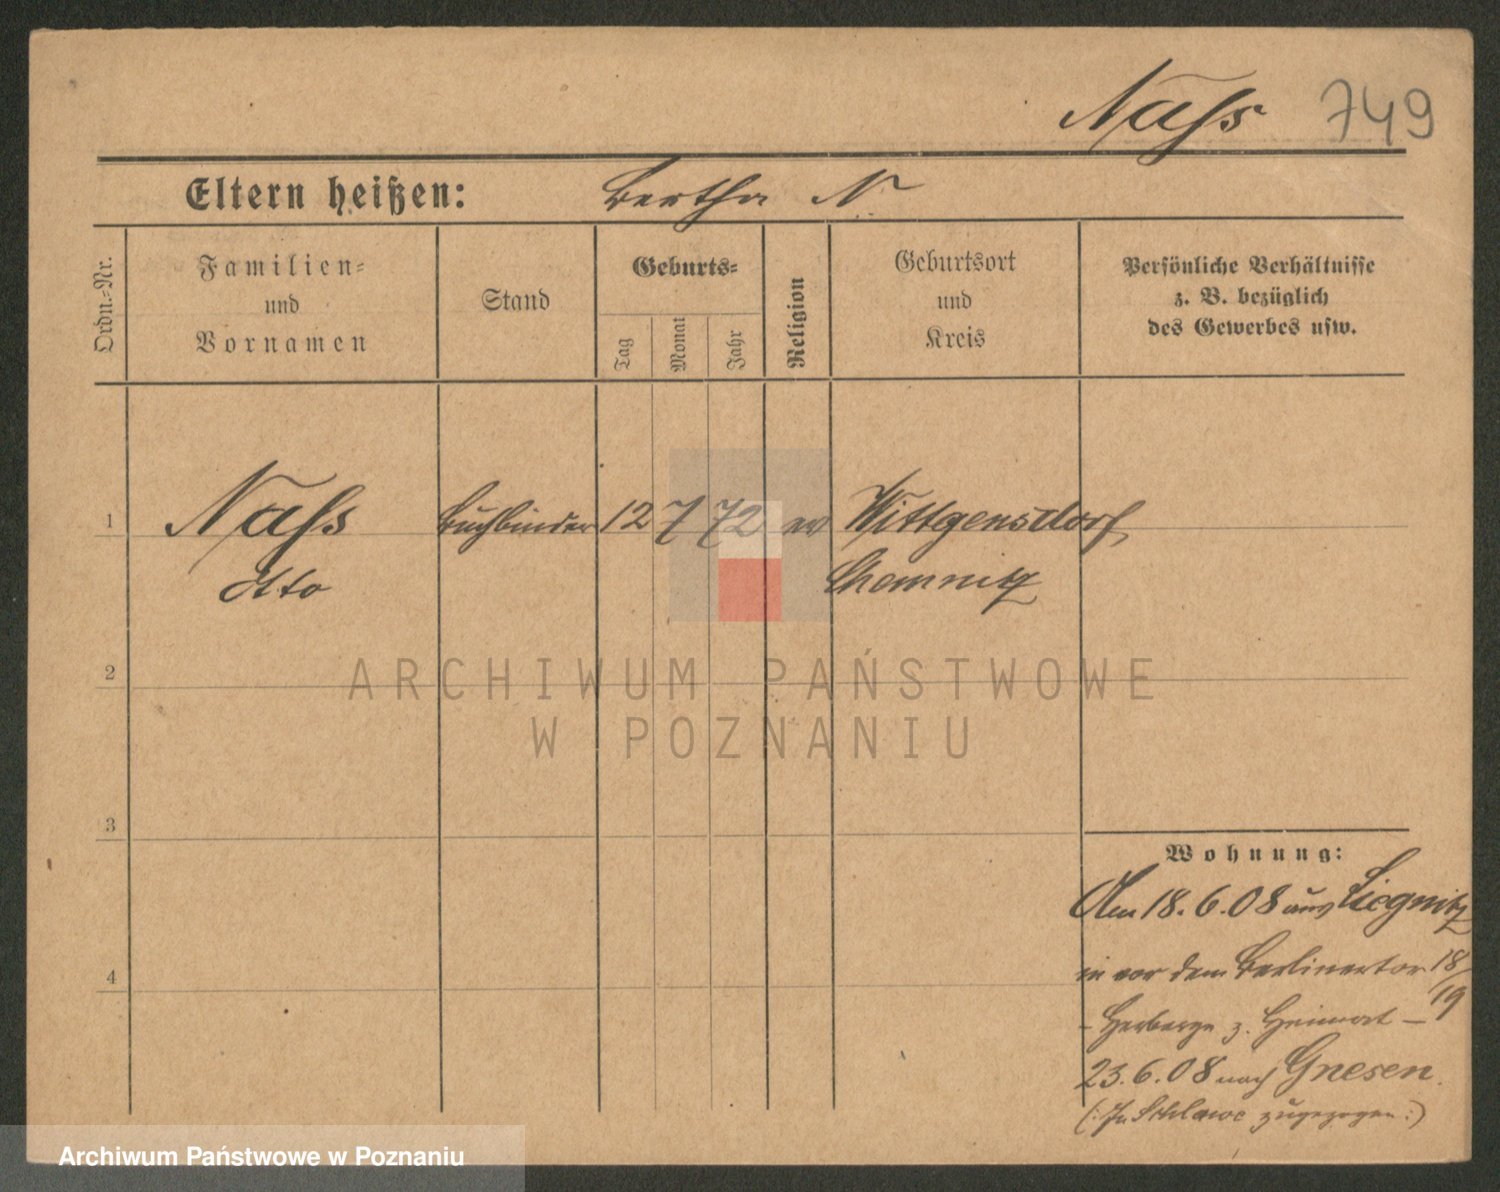 Nass 749
Eltern heißen: Bertha N
Ordn.-Nr.
Familien-
und
Vornamen
Stand
Geburts-
Tag
Monat
Jahr
Religion
Geburtsort
und
Kreis
Persönliche Verhältnisse
z. B. bezüglich
des Gewerbes usw.
1 Nass Buchbinder 12 7 72 ev Wittgensdorf
Otto Chemnitz
2
ARCHIWUM PAŃSTWOWE
W POZNANIU
3
Wohnung:
Am 18.6.08 aus Liegnitz
4
in vor dem Berlinertor 18/19
- Herberge z. Heimat -
23.6.08 nach Gnesen.
(: In Schlawe zugezogen :)
Archiwum Państwowe w Poznaniu